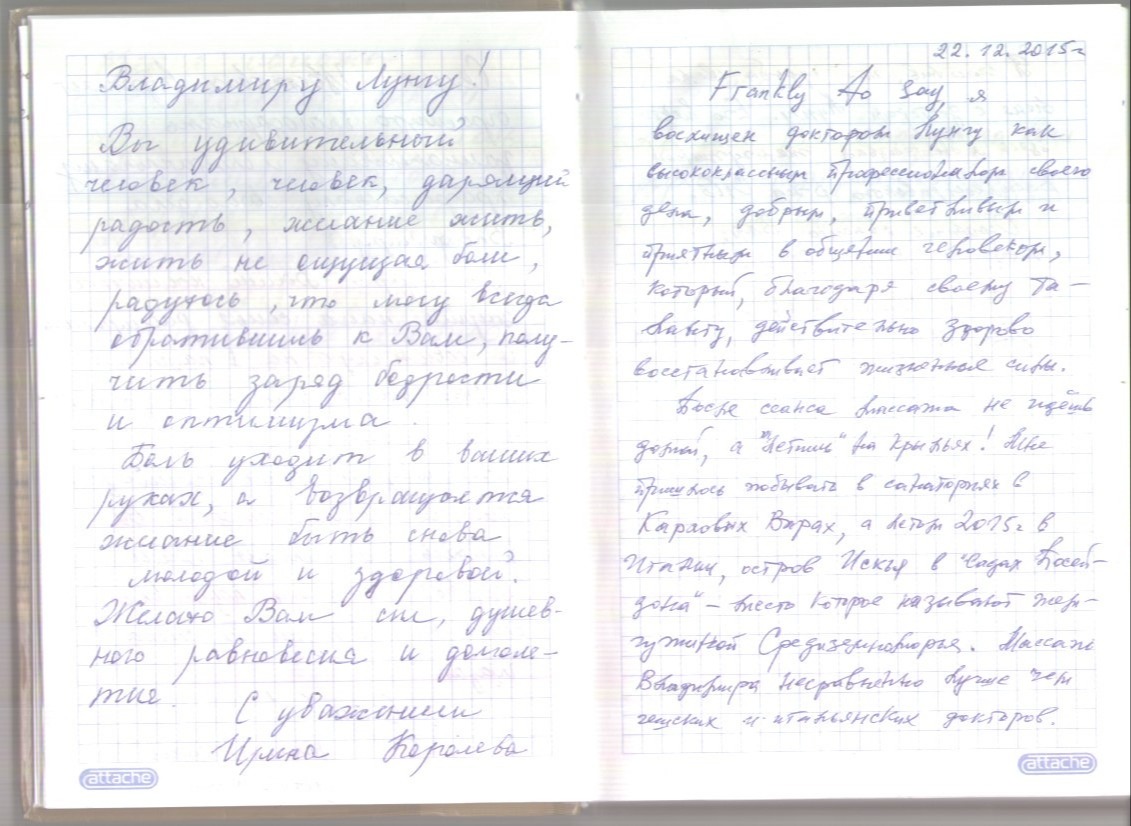 Владимиру Лунгу!
Вы удивительный
человек, человек, дарящий
радость, желание жить,
жить не ощущая боли,
радуюсь, что могу всегда
обратившись к Вам, полу-
чить заряд бодрости
и оптимизма.
Боль уходит в ваших
руках, а возвращается
желание быть снова
молодой и здоровой.
Желаю Вам сил, душев-
ного равновесия и долголе-
тия.
С уважением
Ирина Королева
attache
22.12.2015г
Frankly to say, я
восхищен доктором Лунгу как
высококлассным профессионалом своего
дела, добрым, приветливым и
приятным в общении человеком,
который, благодаря своему та-
ланту, действительно здорово
восстанавливает жизненные силы.
После сеанса массажа не идёшь
домой, а "летишь" на крыльях! Мне
пришлось побывать в санаториях в
Карловых Варах, а летом 2015г в
Италии, остров Искья в "Садах Посей-
дона" – место которое называют жем-
чужиной Средиземноморья. Массаж
Владимира несравненно лучше чем
чешских и итальянских докторов.
attache